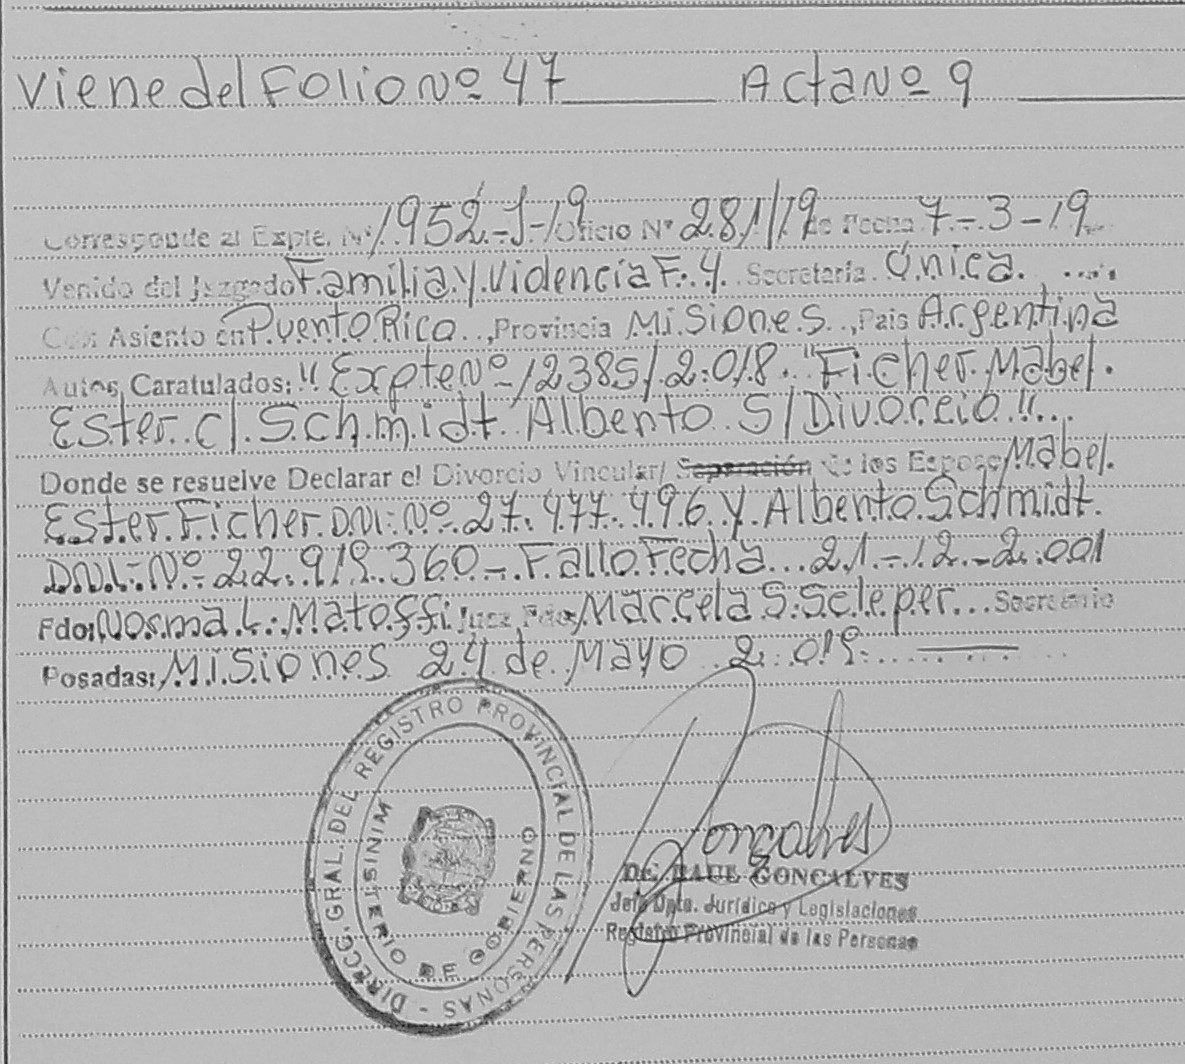 Viene del Folio Nº 47 Acta Nº 9
Corresponde al Expte. Nº 1952-J-19 Oficio Nº 281/19 de Fecha 7-3-19
Venido del Juzgado Familia y Videncia F. y. Secretaria Única.
Con Asiento en Puento Rico, Provincia Misiones, Pais Argentina
Autos, Caratulados: "Expte Nº 12385/2.018. "Ficher Mabel.
Ester c/. Schmidt Albento S/Divorcio"...
Donde se resuelve Declarar el Divorcio Vincular/ Separación de los Esposo Mabel.
Ester Ficher DNI: Nº 27.477.496 y Albento Schmidt.
DNI: Nº 22.919.360 - Fallo Fecha 21-12-2.001
Fdo: Norma L. Matoffi Juez Fdo: Marcela S. Scleper... Secretario
Posadas: Misiones 24 de Mayo 2.019.
DIRECC. GRAL. DEL REGISTRO PROVINCIAL DE LAS PERSONAS -
MINISTERIO DE GOBIERNO
Goncalves
Dr. RAUL GONCALVES
Jefe Dpto. Jurídico y Legislaciones
Registro Provincial de las Personas